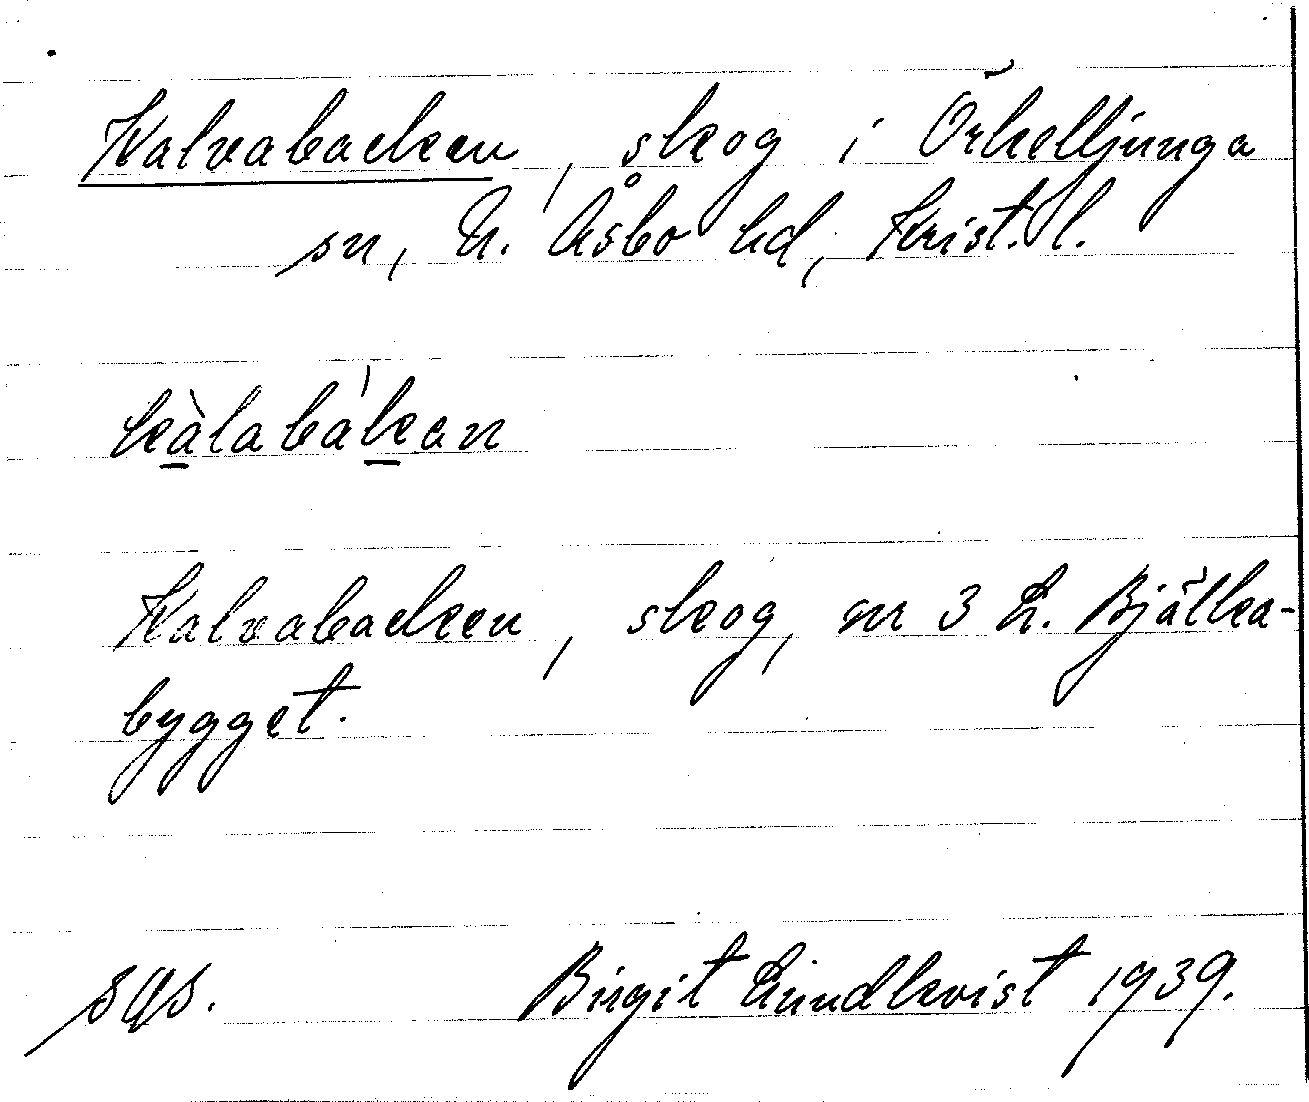 Kalvabacken, skog i Örkelljunga
sn, N. Åsbo hd, Krist. l.
kàlabák̲an
Kalvabacken, skog, nr 3 L. Bjälka-
bygget.
sgs. Birgit Lindkvist 1939.